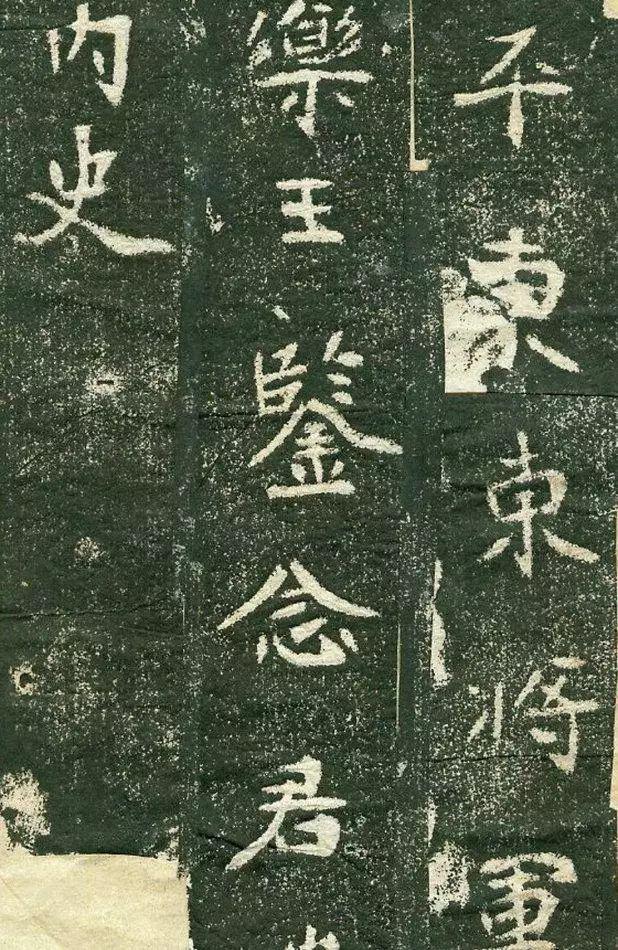 平東東將軍
樂王鑒念君
內史